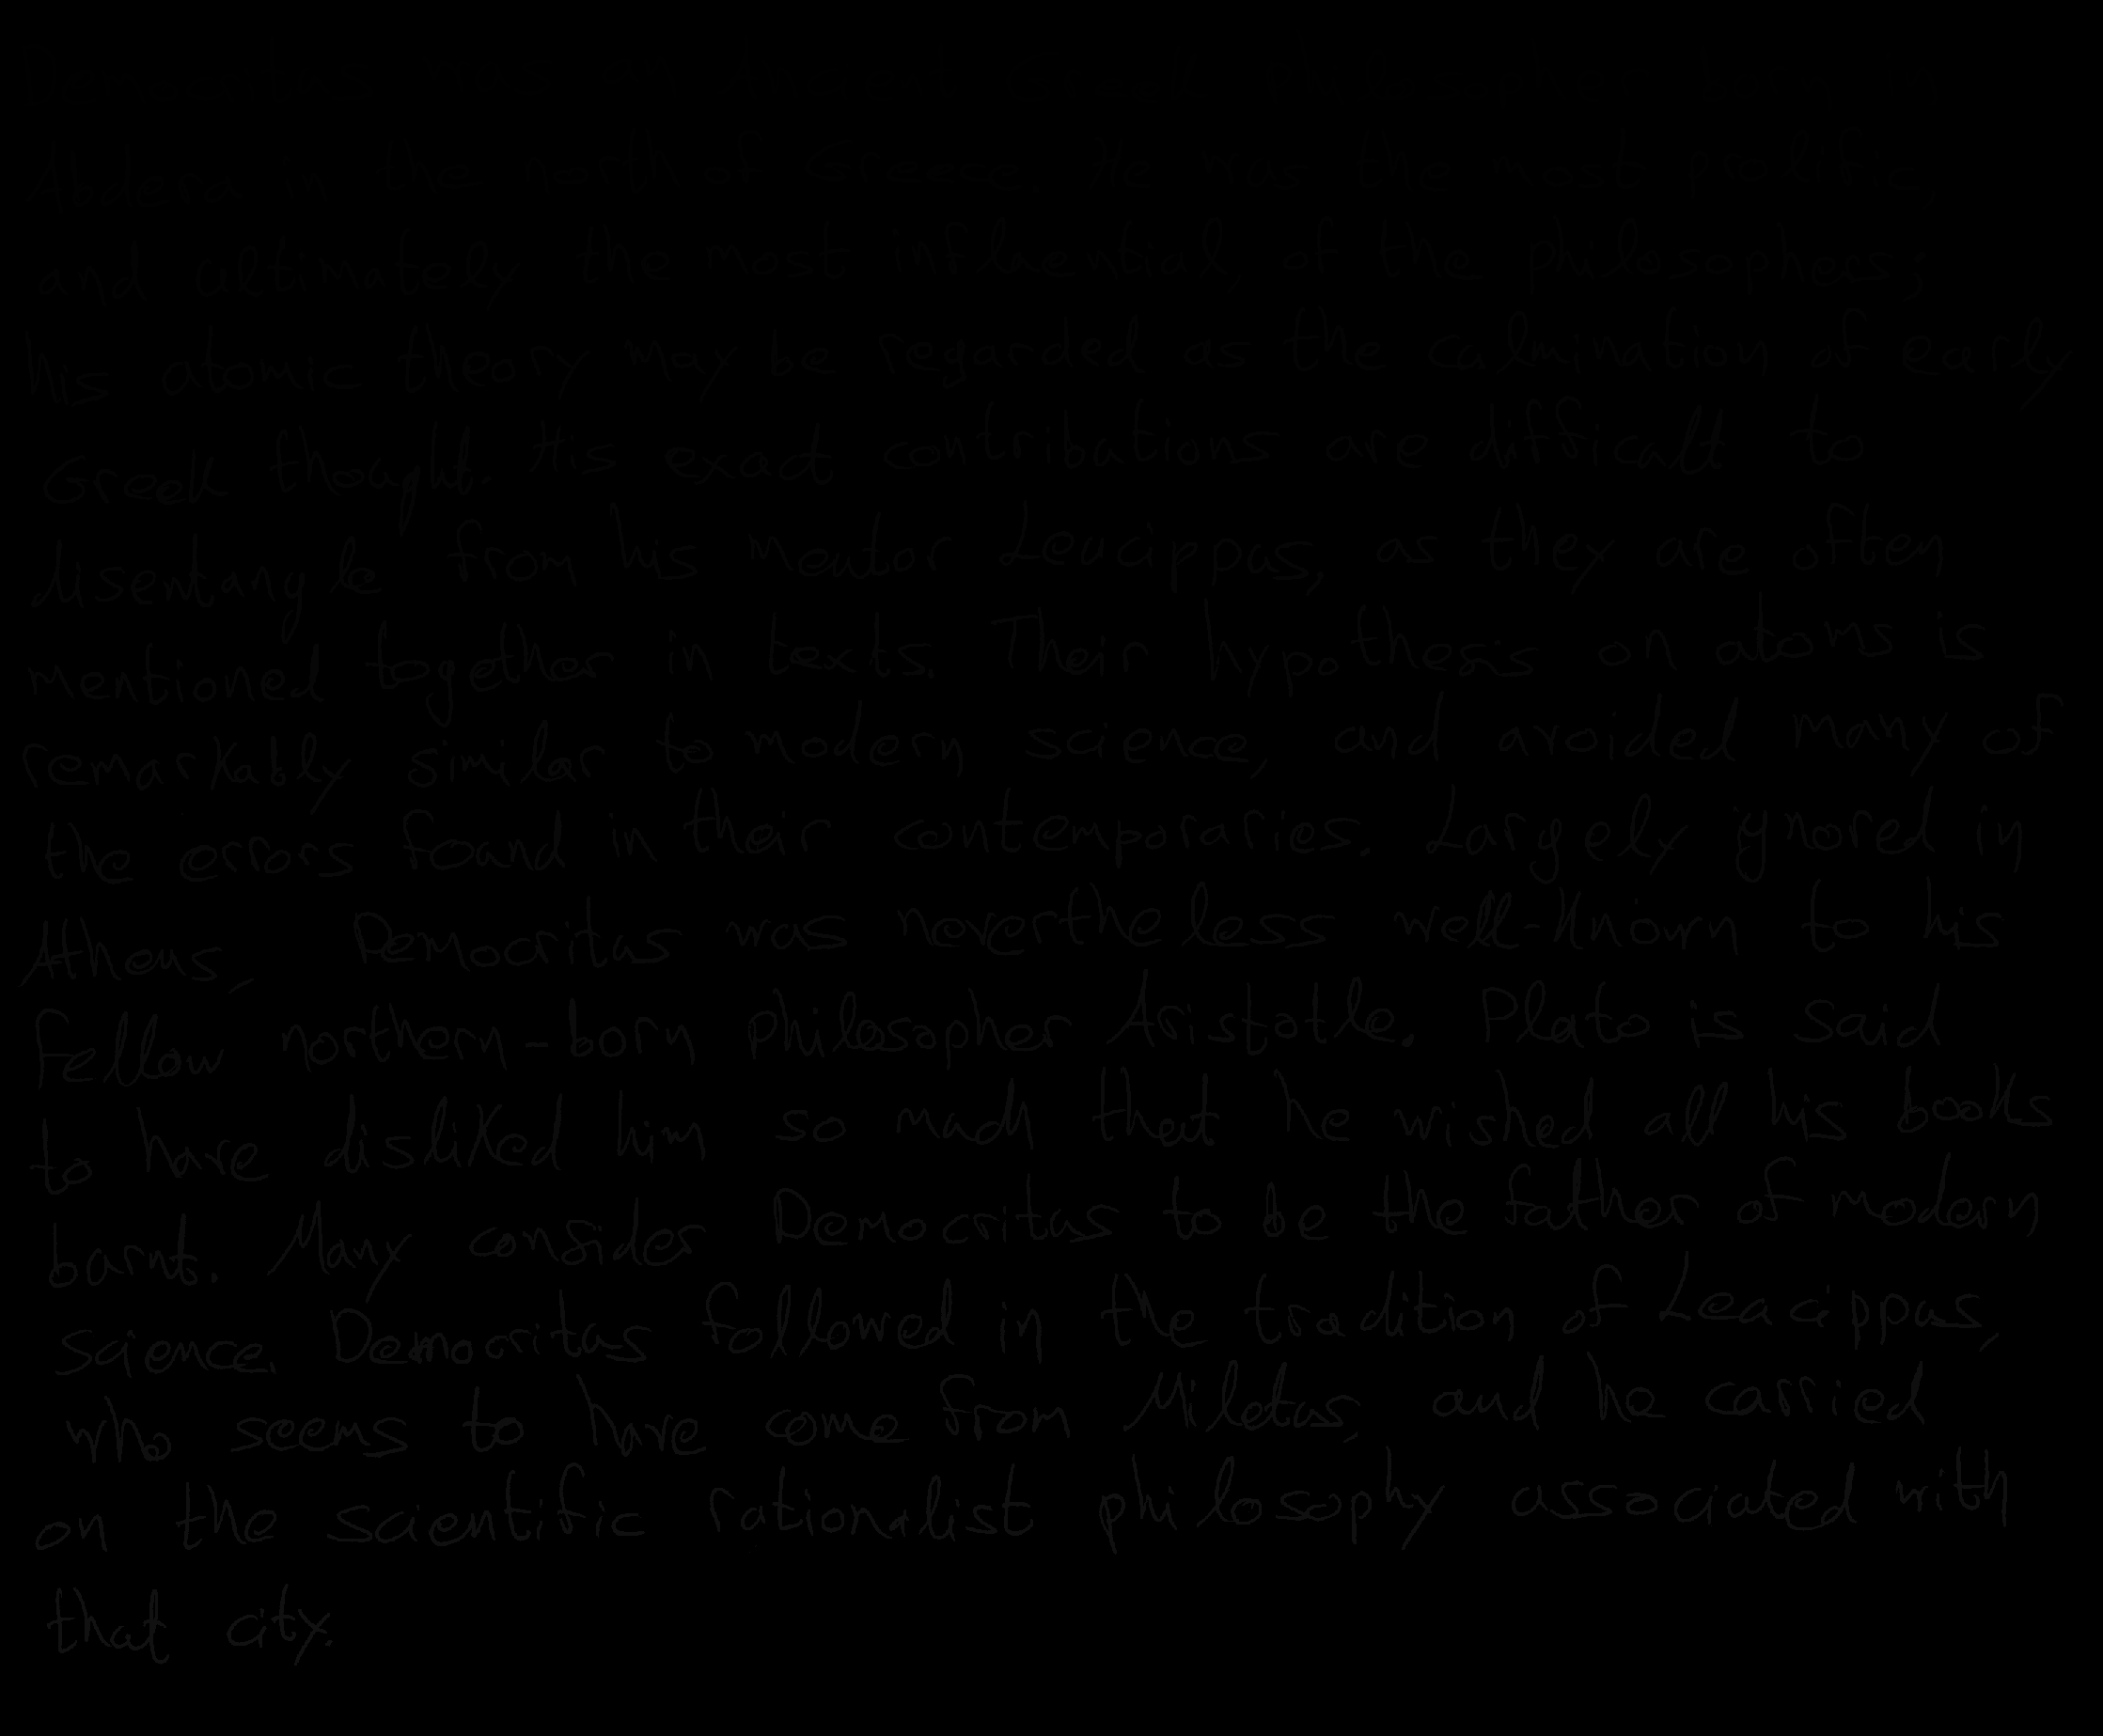 Abdera in the north of Greece. He was the most prolific,
and ultimately the most influential, of the philosophers;
his atomic theory may be regarded as the culmination of early
Greek thought. His exact contributions are difficult to
disentangle from his mentor Leucippus, as they are often
mentioned together in texts. Their hypothesis on atoms is
remarkably similar to modern science, and avoided many of
the errors found in their contemporaries. Largely ignored in
Athens, Democritus was nevertheless well-known to his
fellow northern-born philosopher Aristotle. Plato is said
to have disliked him so much that he wished all his books
burnt. Many consider Democritus to be the father of modern
science. Democritus followed in the tradition of Leucippus,
who seems to have come from Miletus, and he carried
on the scientific rationalist philosophy associated with
that city.